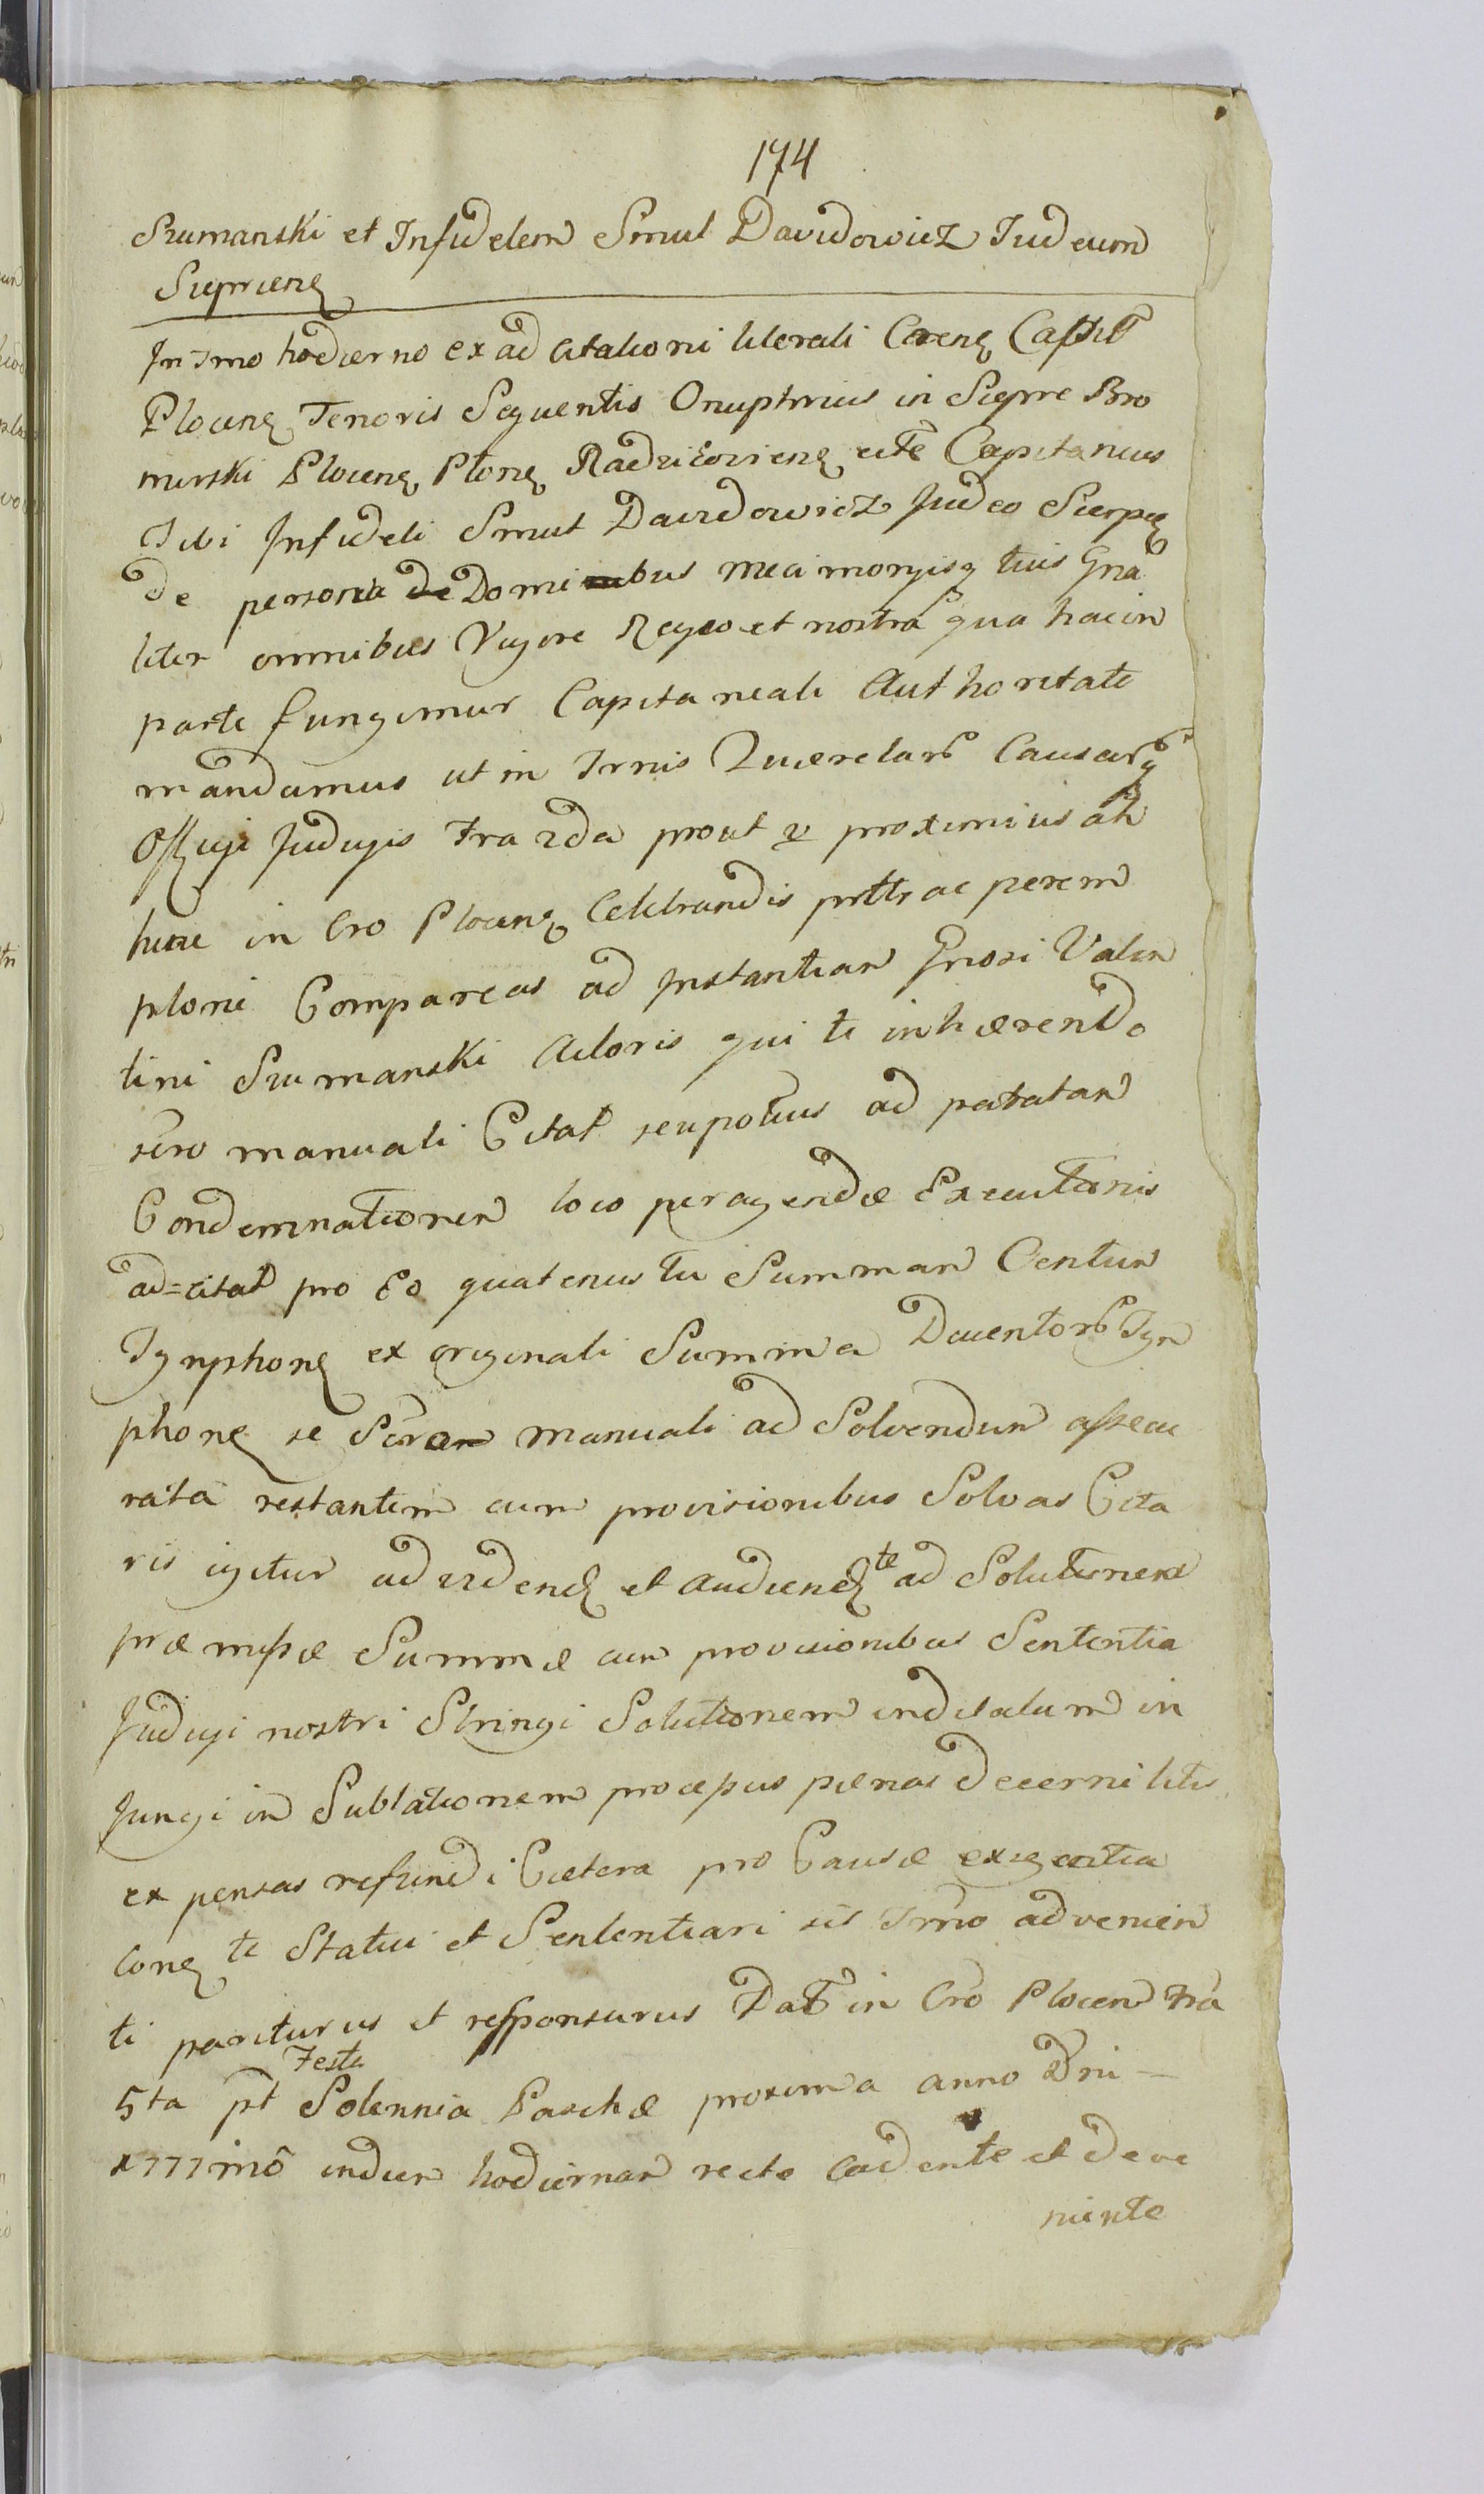 174
Szumanski et Infidelem Smul Davidowicz Iudeum
Siepriens
In Tmo hodierno ex ad citationi literali Crens Capit
Plocens Tenoris Sequentis Onuphrius in Siepre Bro
mirski Plocens Ptons Radzieiowiens ette Capitaneus
Tibi Infideli Smul Davidowicz Judeo Sierpc
de persona de Dominibus meci monijsq tuis Gna
liter omnibus Vigore Regeo et nostra qua hacin
parte fungimur Capitaneali Authoritate
mandamus ut in Trnis Querelar Causarq
Officiji Judicyis Fra 2da prout et proximius ab
hinc in Cro Plocens Celebrandis prttr ac perem
ptorie Compareas ad Instantian Gnosi Valen
tini Szumanski Actoris qui te inhærendo
scro manuali Citat seupotius ad patratan
Condemnationen loco peragendæ Executionis
ad=citat pro Eo quatenus Tu Summan Centun
Tynphons ex originali Summa Ducentor Tyn
phons se Scran manuali ad Solvendun assecu
rata restantem cum provisionibus Solvas Cita
ris igitur ad vidend et audiend te ad Solutionem
præmissæ Summæ cun provisionibus Sententia
Judicyi nostri Stringi Solutionem inditatum in
Jungi in Sublationem processus pænas decerni litis
expensas refundi Cætera pro Causæ exigentia
Cone te Statui et Sententiari sis Tmo advenien
ti pariturus et responsurus Dat in Cro Plocen Fra
5ta pt Festa Solennia Paschæ proxima anno Dni —
1777mo indien hodiernan recte cadente et deve
niente